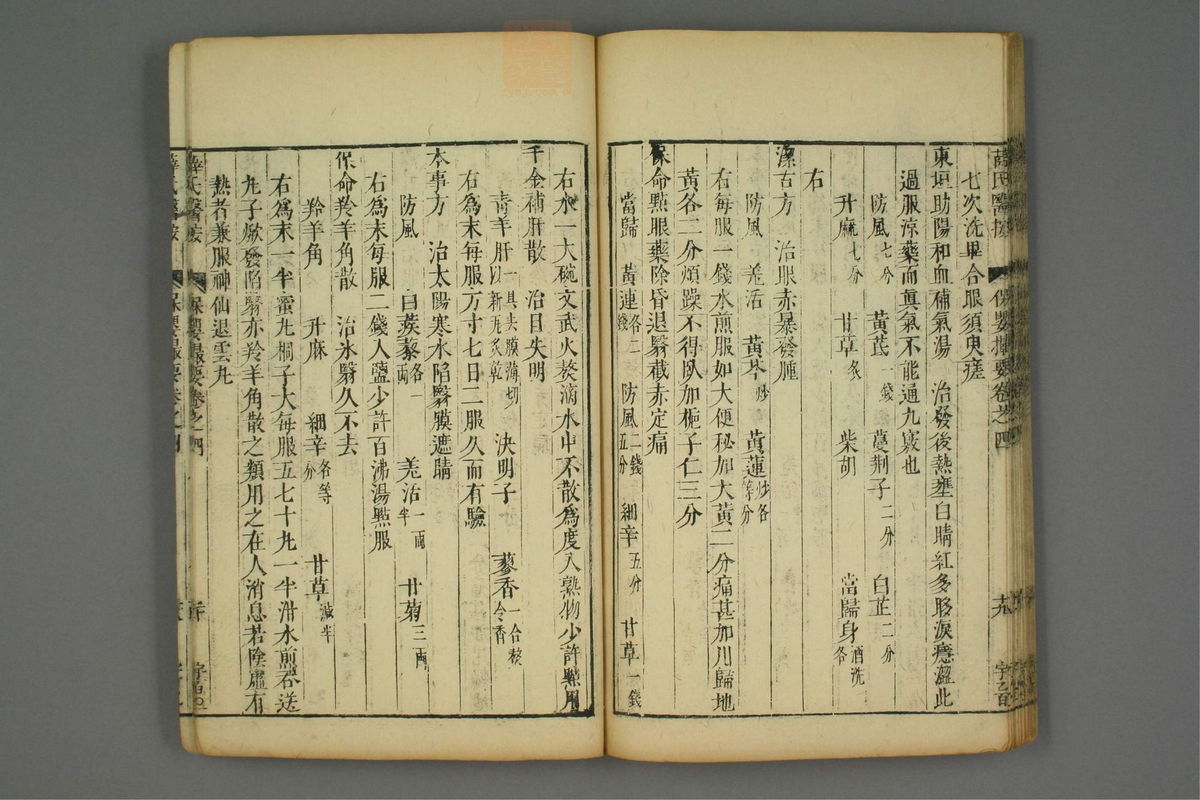 薛氏醫按 保嬰撮要卷之四
七次洗畢合眼須臾瘥
東垣助陽和血補氣湯 治發後熱壅白睛紅多眵淚癮澀此
過服涼藥而真氣不能通九竅也
防風七分 黃芪一錢 蔓荆子二分 白芷二分
升麻七分 甘草炙 柴胡 當歸身酒洗各
右
潔古方 治眼赤暴發腫
防風 羌活 黃芩炒 黃蓮炒各等分
右每服一錢水煎服如大便秘加大黃二分痛甚加川歸地
黃各二分煩躁不得臥加梔子仁三分
保命點眼藥除昏退翳截赤定痛
當歸 黃連各二錢 防風二錢五分 細辛五分 甘草一錢
右水一大碗文武火熬滴水中不散為度入熟物少許點用
千金補肝散 治目失明
青羊肝一具去膜薄切以新瓦炙乾 決明子 蓼香一合熬令香
右為末每服方寸七日二服久而有驗
本事方 治太陽寒水陷翳膜遮睛
防風 白蒺藜各一兩 羌活一兩半 甘菊三兩
右為末每服二錢入鹽少許百沸湯點服
保命羚羊角散 治氷翳久不去
羚羊角 升麻 細辛各等分 甘草減半
右為末一半蜜九桐子大每服五七十九一半泔水煎吞送
九子焮發陷翳亦羚羊角散之類用之在人消息若陰虛有
熱者兼服神仙退雲九
薛氏醫按 保嬰撮要卷之四